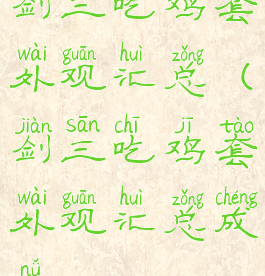 剑三吃鸡套
wài guān huì zǒng
外观汇总(
jiàn sān chī jī tào
剑三吃鸡套
wài guān huì zǒng chéng
外观汇总成
nǚ